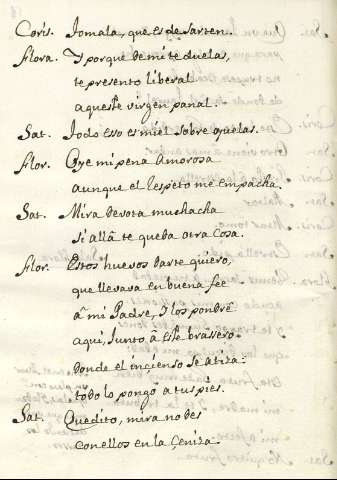 Coris. Tomala, que es de sarten.
Flora. Y porque de mi te duelas,
te presento liberal
aqueste virgen panal.
Sat. Todo eso es miel sobre ojuelas.
Flor. Oye mi pena Amorosa
aunque el respeto me empacha.
Sat. Mira devota muchacha
si allà te queda otra cosa.
Flor. Estos huevos darte quiero,
que llevava en buena fee
à mi Padre, y los pondrè
aqui, Junto à este brassero
donde el inçienso se atiza:
todo lo pongo a tus pies.
Sat. Quedito, mira no des
con ellos en la Çeniza.